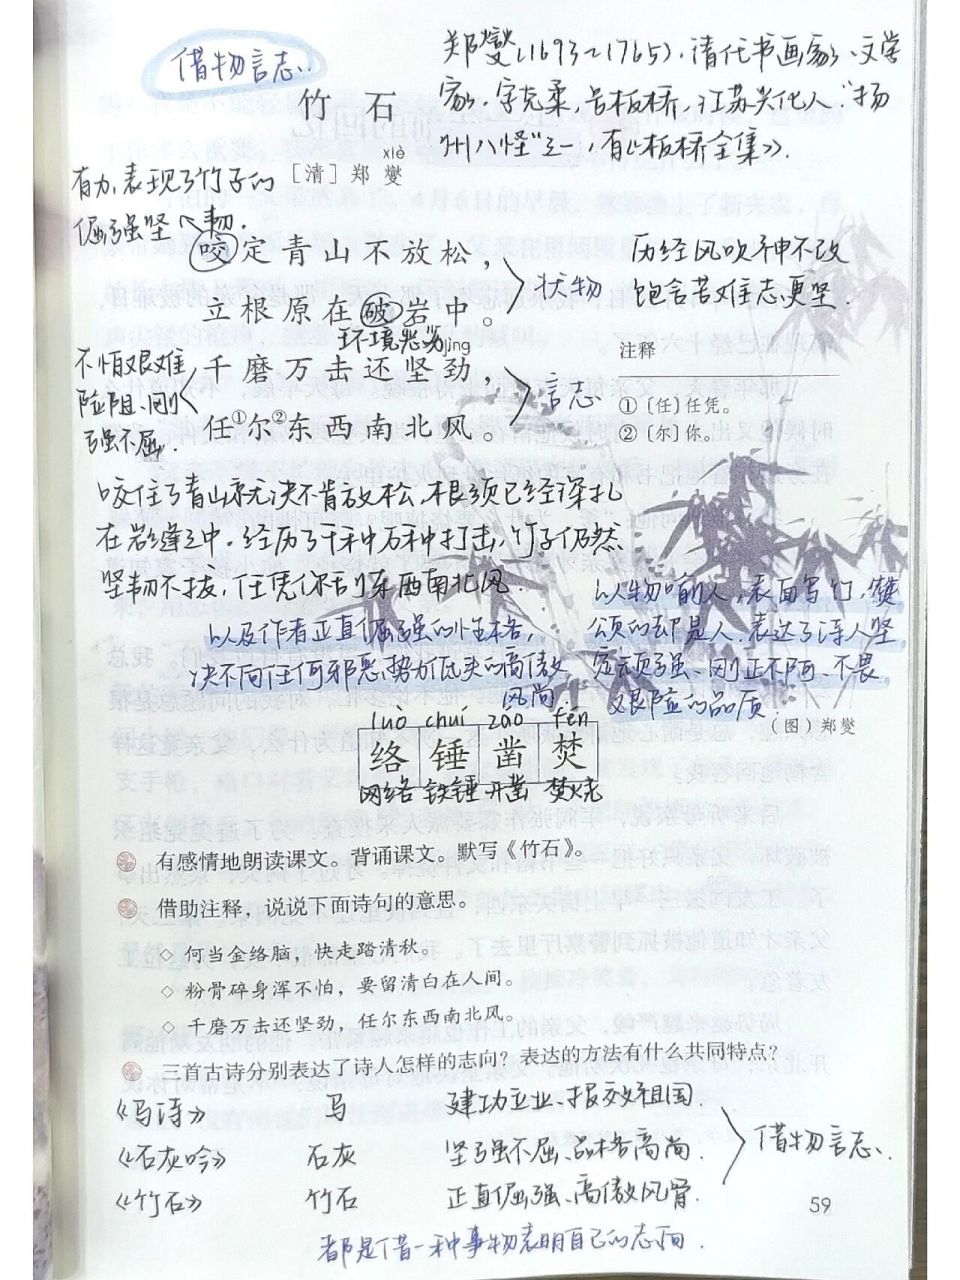 借物言志
郑燮(1693~1765)，清代书画家、文学
家。字克柔，号板桥，江苏兴化人。"扬
州八怪"之一，有《板桥全集》。
竹石
xiè
[清] 郑燮
有力，表现了竹子的
倔强坚韧。
咬定青山不放松，
立根原在破岩中。
状物
环境恶劣
jìng
千磨万击还坚劲，
任①尔②东西南北风。
言志
不怕艰难
险阻、刚
强不屈。
历经风吹神不改
饱含苦难志更坚
注释
①〔任〕任凭。
②〔尔〕你。
咬住了青山就决不肯放松，根须已经深扎
在岩缝之中。经历了千种万种打击，竹子仍然
坚韧不拔，任凭你刮东西南北风。
以物喻人，表面写竹，赞
颂的却是人。表达了诗人坚
定顽强、刚正不阿、不畏
艰险的品质。
以及作者正直倔强的性格，
决不向任何邪恶势力低头的高傲
风骨。
（图）郑燮
luò chuí záo fén
络锤凿焚
网络 铁锤 开凿 焚烧
有感情地朗读课文。背诵课文。默写《竹石》。
借助注释，说说下面诗句的意思。
◇ 何当金络脑，快走踏清秋。
◇ 粉骨碎身浑不怕，要留清白在人间。
◇ 千磨万击还坚劲，任尔东西南北风。
三首古诗分别表达了诗人怎样的志向？表达的方法有什么共同特点？
《马诗》 马 建功立业、报效祖国
《石灰吟》 石灰 坚强不屈、品格高尚
《竹石》 竹石 正直倔强、高傲风骨
借物言志
都是借一种事物表明自己的志向.
59